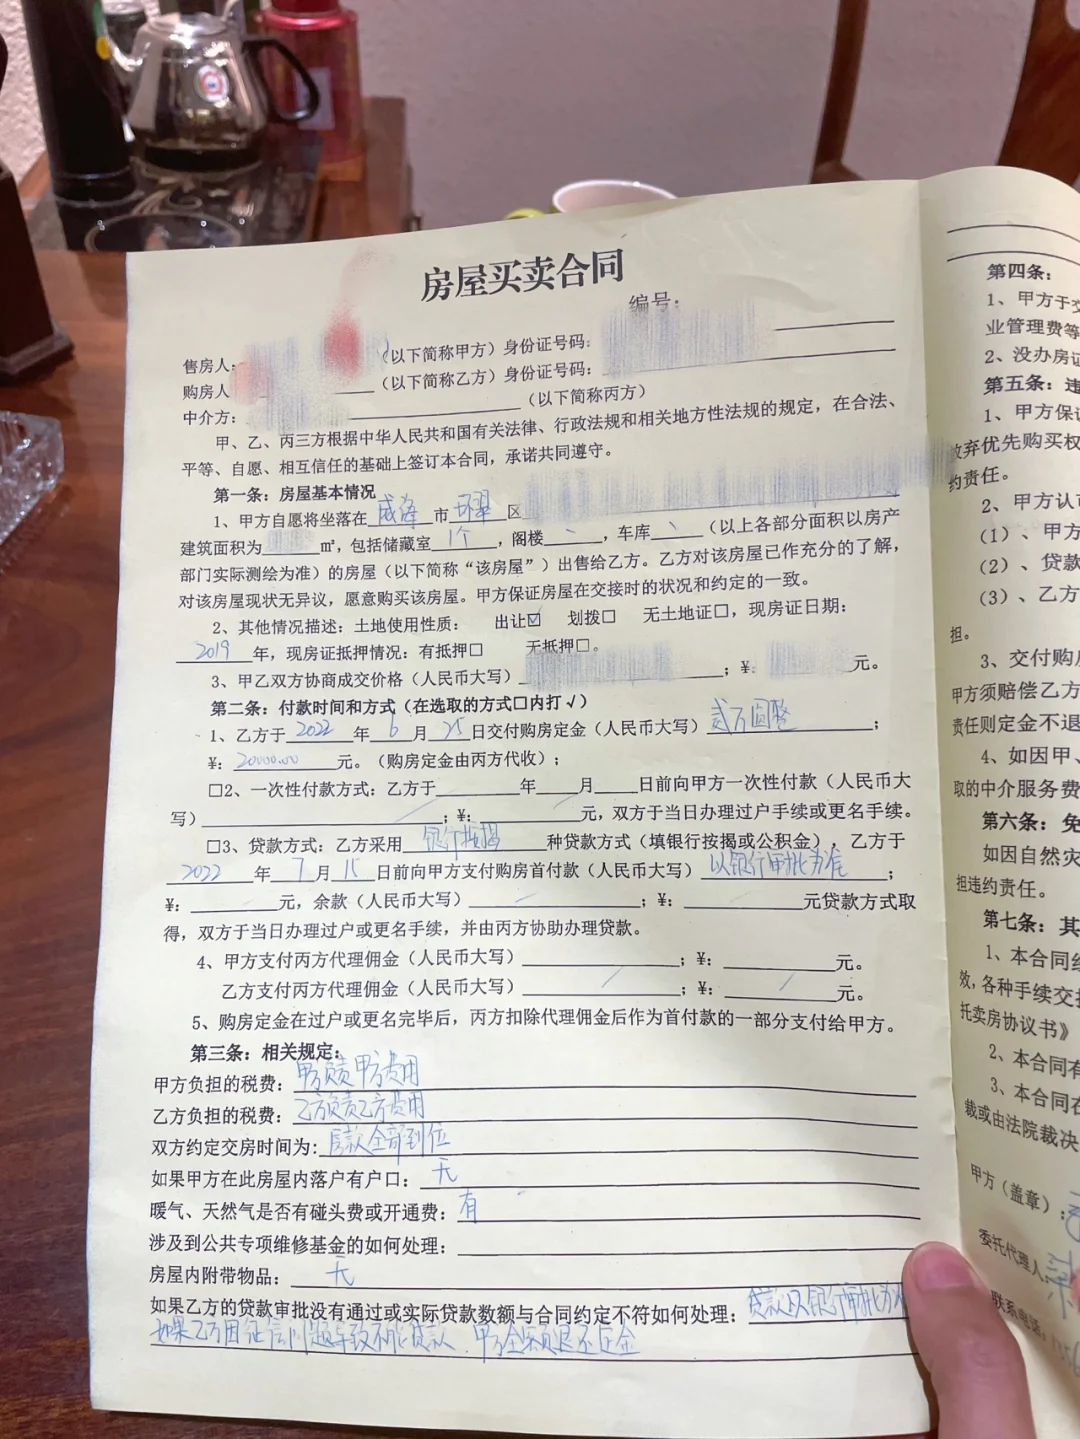 房屋买卖合同
编号:
售房人: (以下简称甲方) 身份证号码:
购房人 (以下简称乙方) 身份证号码:
中介方: (以下简称丙方)
甲、乙、丙三方根据中华人民共和国有关法律、行政法规和相关地方性法规的规定，在合法、
平等、自愿、相互信任的基础上签订本合同，承诺共同遵守。
第一条：房屋基本情况
1、甲方自愿将坐落在威海市环翠区
建筑面积为 ㎡，包括储藏室1个，阁楼 ，车库 （以上各部分面积以房产
部门实际测绘为准）的房屋（以下简称“该房屋”）出售给乙方。乙方对该房屋已作充分的了解，
对该房屋现状无异议，愿意购买该房屋。甲方保证房屋在交接时的状况和约定的一致。
2、其他情况描述：土地使用性质： 出让☑ 划拨□ 无土地证□，现房证日期：
2019年，现房证抵押情况：有抵押□ 无抵押□。
3、甲乙双方协商成交价格（人民币大写） ；¥： 元。
第二条：付款时间和方式（在选取的方式□内打√）
1、乙方于2022年6月25日交付购房定金（人民币大写）贰万圆整；
¥：20000.00元。（购房定金由丙方代收）；
□2、一次性付款方式：乙方于 年 月 日前向甲方一次性付款（人民币大
写） ；¥： 元，双方于当日办理过户手续或更名手续。
□3、贷款方式：乙方采用银行按揭种贷款方式（填银行按揭或公积金），乙方于
2022年7月15日前向甲方支付购房首付款（人民币大写）以银行审批为准；
¥： 元，余款（人民币大写） ；¥： 元贷款方式取
得，双方于当日办理过户或更名手续，并由丙方协助办理贷款。
4、甲方支付丙方代理佣金（人民币大写） ；¥： 元。
乙方支付丙方代理佣金（人民币大写） ；¥： 元。
5、购房定金在过户或更名完毕后，丙方扣除代理佣金后作为首付款的一部分支付给甲方。
第三条：相关规定：
甲方负担的税费：甲方负责甲方费用
乙方负担的税费：乙方负责乙方费用
双方约定交房时间为：房款全部到位
如果甲方在此房屋内落户有户口：无
暖气、天然气是否有碰头费或开通费：有
涉及到公共专项维修基金的如何处理：
房屋内附带物品：无
如果乙方的贷款审批没有通过或实际贷款数额与合同约定不符如何处理：贷款以银行审批为
如果乙方因征信问题导致不能贷款，甲方全额退还定金
第四条：
1、甲方于
业管理费等
2、没办房
第五条：
1、甲方保
放弃优先购买权
约责任。
2、甲方认
（1）、甲方
（2）、贷款
（3）、乙方
担。
3、交付购
甲方须赔偿乙方
责任则定金不退
4、如因甲、
取的中介服务费
第六条：
如因自然灾
担违约责任。
第七条：其
1、本合同
效，各种手续交
托卖房协议书》
2、本合同有
3、本合同在
裁或由法院裁决
甲方（盖章）：
委托代理人
联系电话：